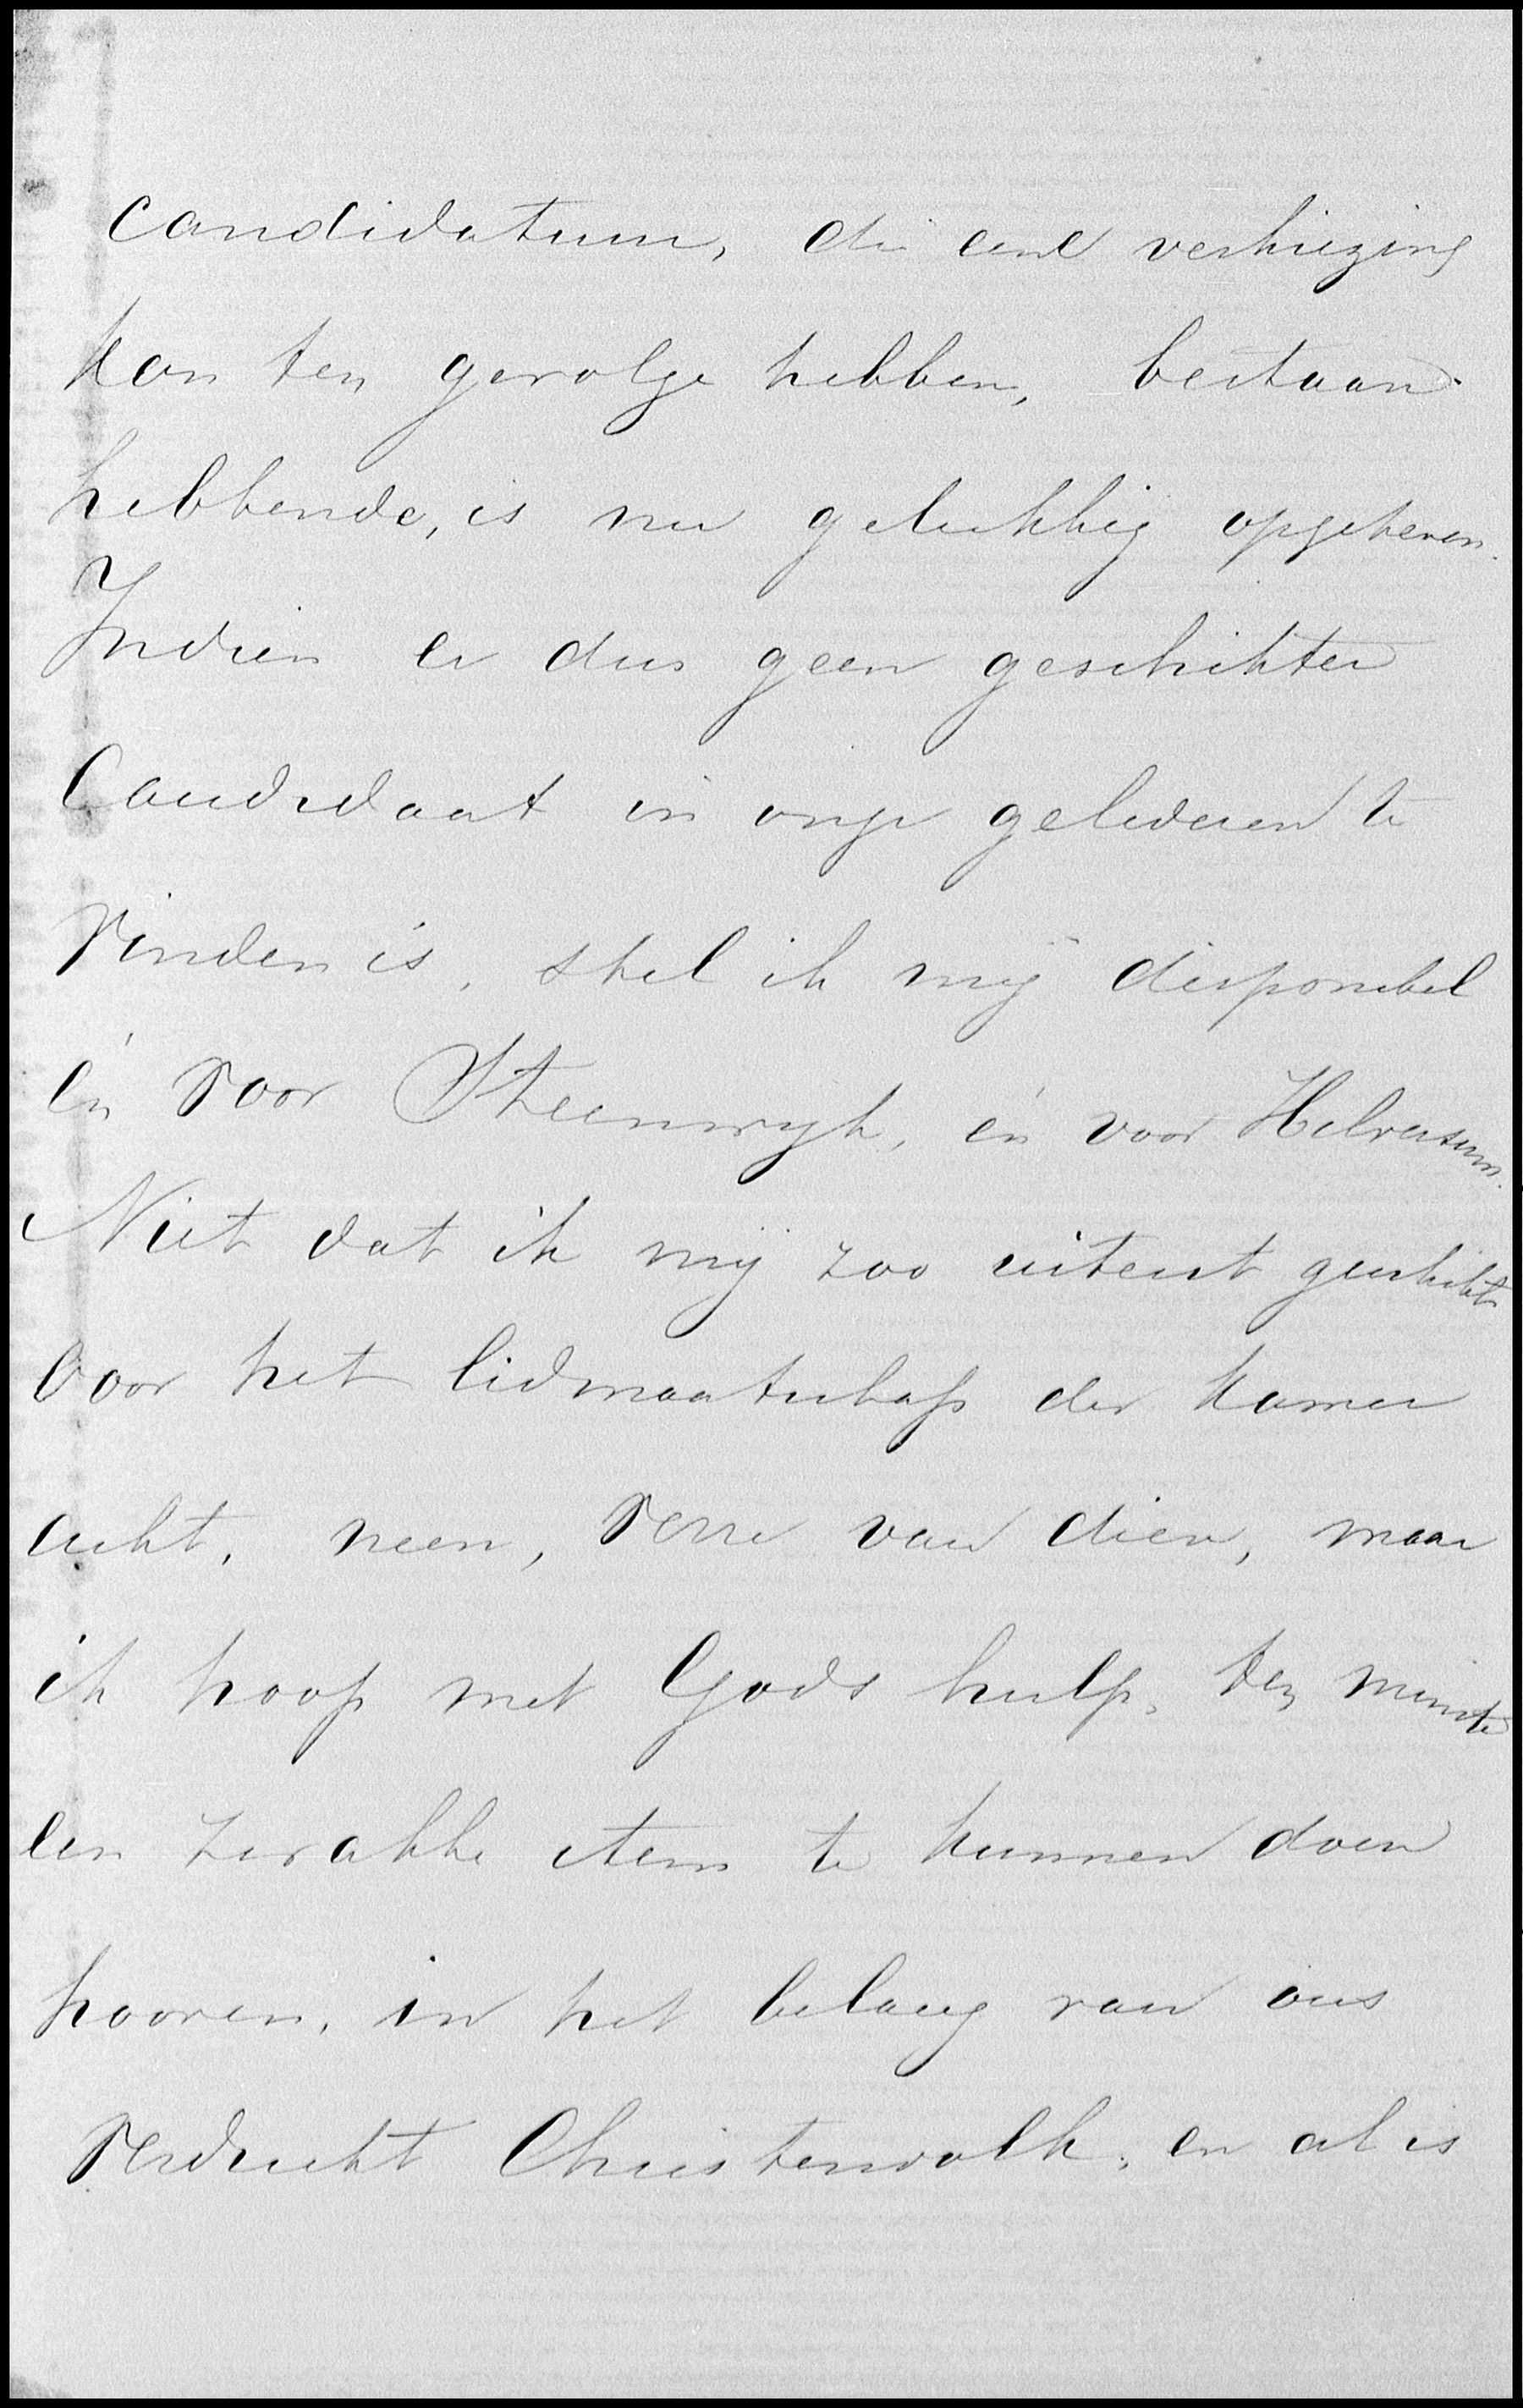 candidatuur, die eene verkiezing
kon ten gevolge hebben, bestaan
hebbende, is nu gelukkig opgeheven.
Indien er dus geen geschikter
Candidaat in onze gelederen te
vinden is, stel ik mij disponibel
én voor Steenwyk, én voor Hilversum.
Niet dat ik mij zoo uiterst geschikt
voor het lidmaatschap der Kamer
acht, neen, verre van dien, maar
ik hoop met Gods hulp, ten minste
een zwakke stem te kunnen doen
hooren, in het belang van ons
verdrukt Christenvolk, en al is